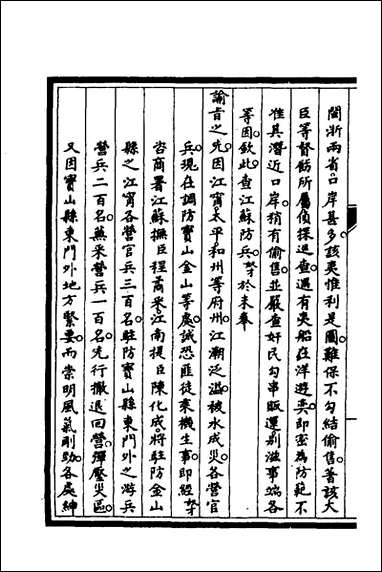 閩浙兩省。口岸甚多。該夷惟利是圖。難保不勾結偷售。著該大
臣等督飭所屬。偵探巡查。遇有夷船在洋遊奕。即密為防範。不
准其潛近口岸。稍有偷售。並嚴查奸民勾串販運。別滋事端。各
等因。欽此。查江蘇防兵。奴才於未奉
諭旨之先。因江甯。太平。和州等府州。江潮泛溢。被水成災。各營官
兵。現在調防寶山金山等處。誠恐匪徒乘機生事。即經奴才
咨商署江蘇撫臣程矞采。江南提臣陳化成。將駐防金山
縣之江甯各營官兵三百名。駐防寶山縣東門外之游兵
營兵二百名。蕪采營兵一百名。先行撤退回營。彈壓災區。
又因寶山縣東門外地方緊要。而崇明風氣剛勁。各處紳